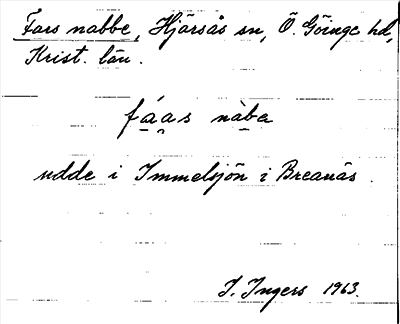 Fars nabbe, Hjärsås sn, Ö. Göinge hd,
Krist. län.
fáas nàba
udde i Immelsjön i Breanäs.
I. Ingers 1963.